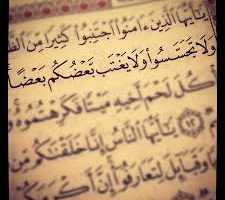 يَٰٓأَيُّهَا ٱلَّذِينَ ءَامَنُوا۟ ٱجْتَنِبُوا۟ كَثِيرًا مِّنَ
وَلَا تَجَسَّسُوا۟ وَلَا يَغْتَب بَّعْضُكُم بَعْضًا
كُلَ لَحْمَ أَخِيهِ مَيْتًا فَكَرِهْتُمُوهُ
١٢ يَٰٓأَيُّهَا ٱلنَّاسُ إِنَّا خَلَقْنَٰكُم مِّن
وَقَبَآئِلَ لِتَعَارَفُوٓا۟ إِنَّ أَكْرَمَكُمْ